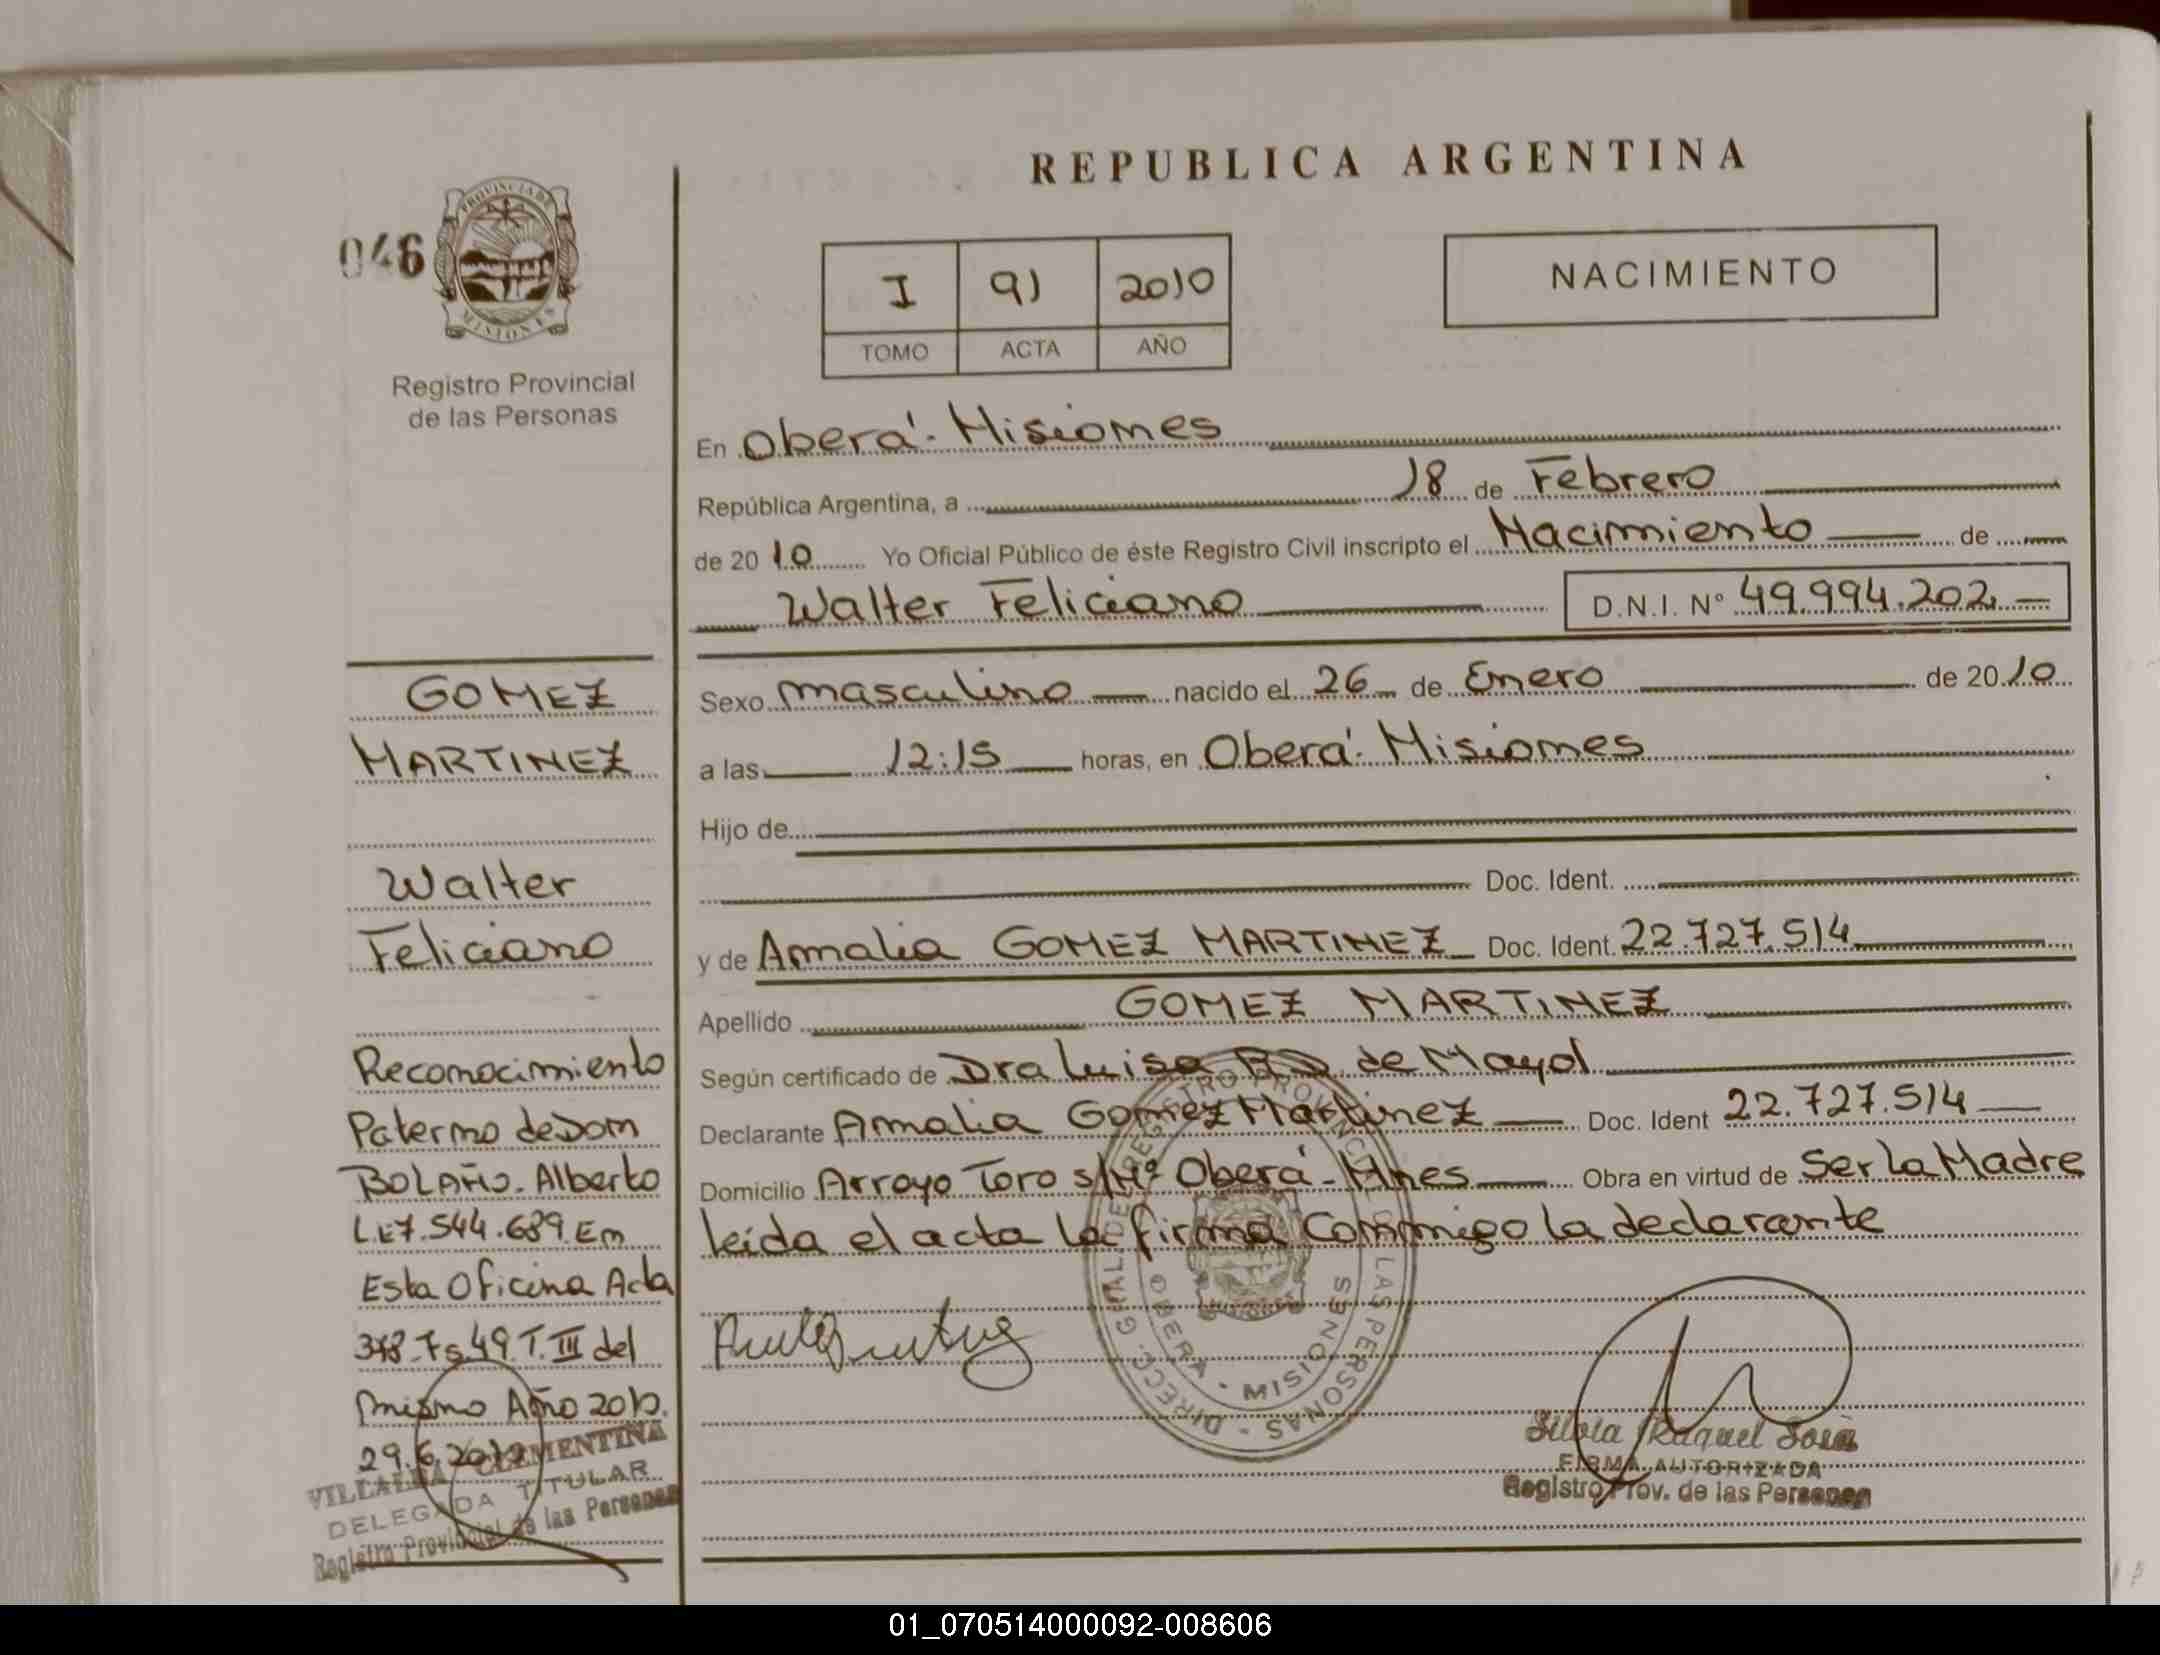 REPUBLICA ARGENTINA
046
PROVINCIA DE
MISIONES
Registro Provincial
de las Personas
I 91 2010
TOMO ACTA AÑO
NACIMIENTO
En Oberá - Misiones
República Argentina, a 18 de Febrero
de 2010 Yo Oficial Público de éste Registro Civil inscripto el Nacimiento de
Walter Feliciano D.N.I. Nº 49.994.202
Sexo masculino nacido el 26 de Enero de 2010
a las 12:15 horas, en Oberá - Misiones
Hijo de
Doc. Ident.
y de Amalia GOMEZ MARTINEZ Doc. Ident. 22.727.514
Apellido GOMEZ MARTINEZ
Según certificado de Dra Luisa de Mayol
Declarante Amalia Gomez Martinez Doc. Ident 22.727.514
Domicilio Arroyo Toro s/Nº Oberá - Mnes Obra en virtud de Ser La Madre
leída el acta la firma Conmigo la declarante
GOMEZ
MARTINEZ
Walter
Feliciano
Reconocimiento
Paterno de Don
BOLAÑO. Alberto
L.E 7.544.689. En
Esta Oficina Acta
Fº 49 T. III del
mismo Año
29.6
VILLALBA CLEMENTINA
DELEGADA TITULAR
Registro Provincial de las Personas
DIRECC. GRAL. DE REGISTRO PROVINCIAL DE LAS PERSONAS
OBERA - MISIONES
Silvia Raquel Sosa
FIRMA AUTORIZADA
Registro Prov. de las Personas
01_070514000092-008606